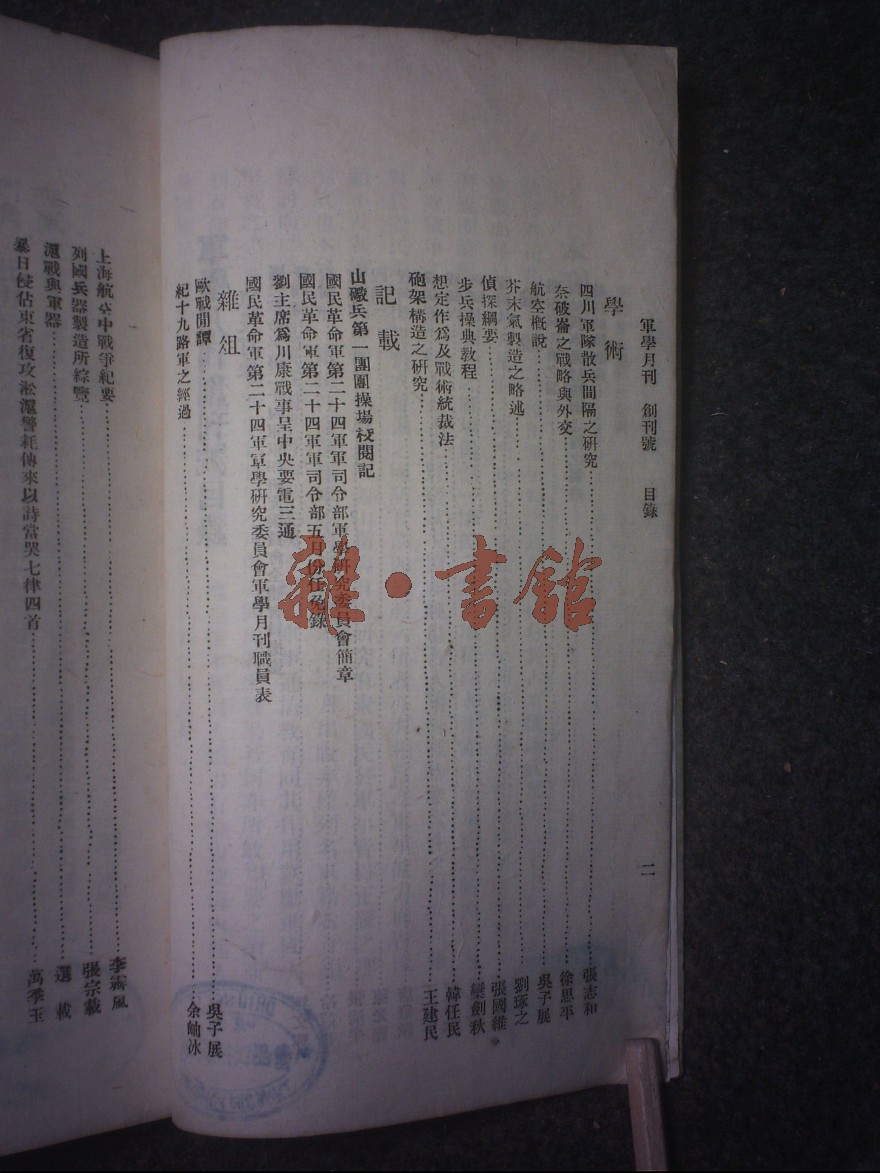 軍學月刊 創刊號 目錄 二
學術
四川軍隊散兵間隔之硏究 張志和
奈破崙之戰略與外交 徐思平
航空概說 吳子展
芥末氣製造之略述 劉琢之
偵探綱要 張國維
步兵操典教程 欒劍秋
想定作爲及戰術統裁法 韓任民
砲架構造之硏究 王建民
記載
山礮兵第一團團操場校閱記
國民革命軍第二十四軍軍司令部軍學硏究委員會簡章
國民革命軍第二十四軍軍司令部五月份任免錄
劉主席爲川康戰事呈中央要電三通
國民革命軍第二十四軍軍學硏究委員會軍學月刊職員表
雜俎
歐戰閒譚 吳子展
紀十九路軍之經過 余岫冰
上海航空中戰爭紀要 李霽風
列國兵器製造所綜覽 張宗載
滬戰與軍器 選載
暴日侵佔東省復攻淞滬警耗傳來以詩當哭七律四首 萬季玉
雜·書館